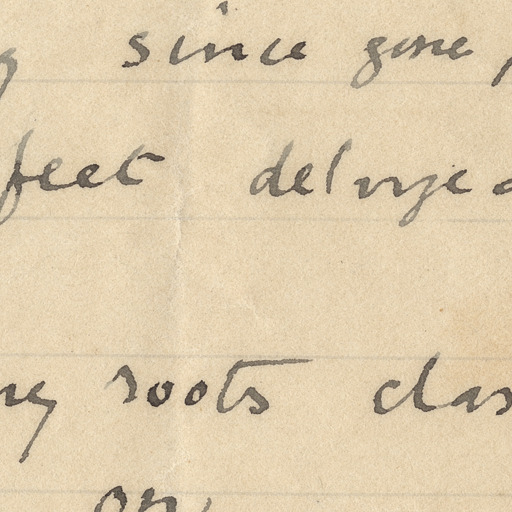 since gone
feet deluge
roots clas
on